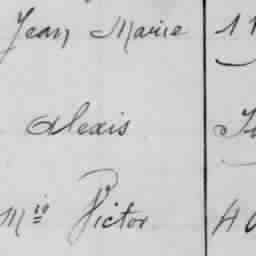 Jean Marie
Alexis
Mie Victor